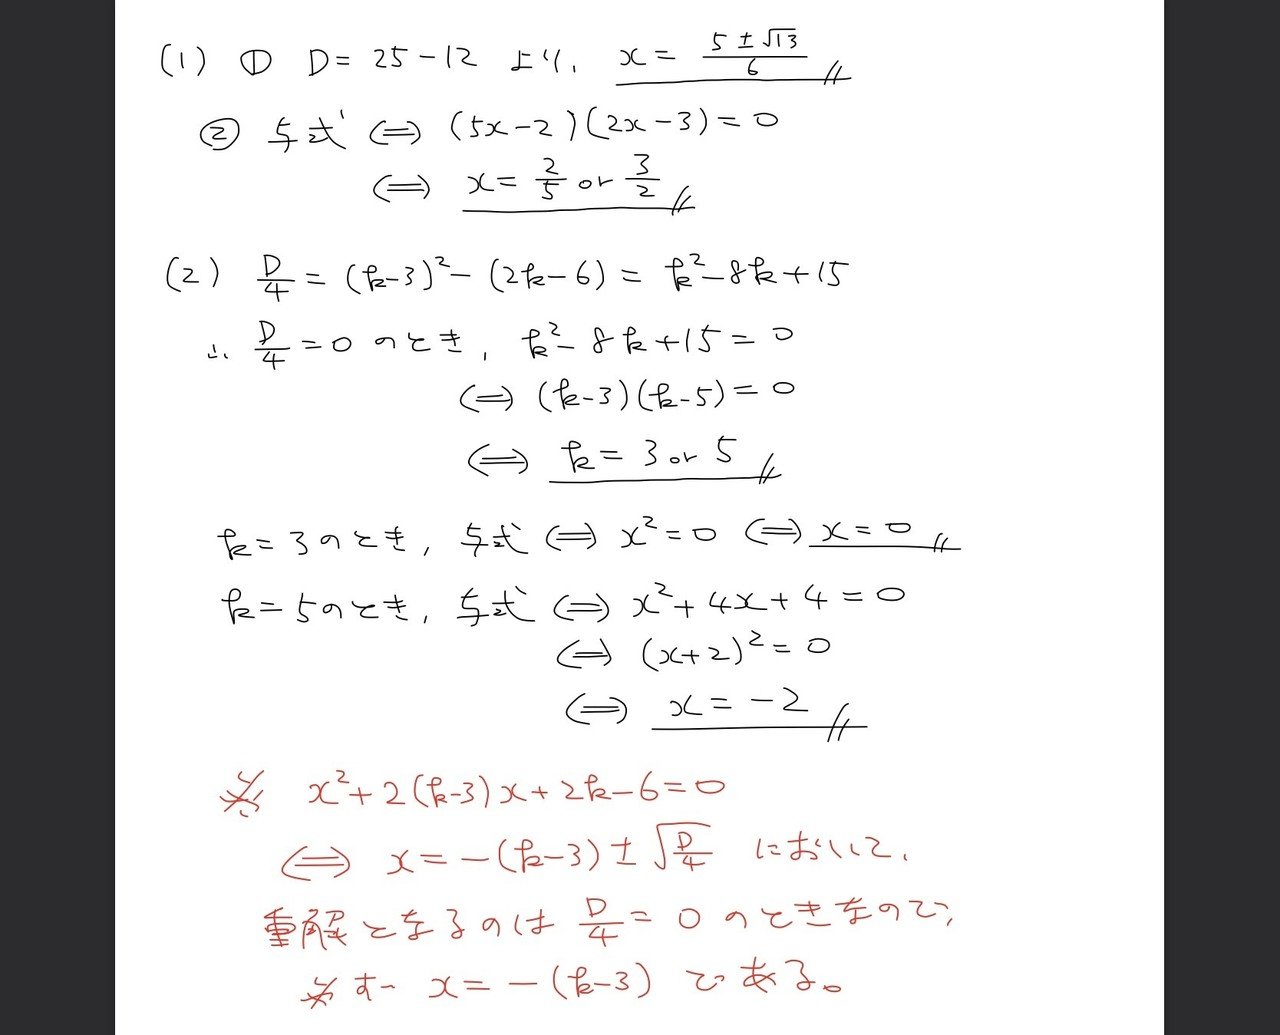 (1) ① D = 25 - 12 より、 x = (5 ± √13)/6
② 与式 ⇔ (5x - 2)(2x - 3) = 0
⇔ x = 2/5 or 3/2
(2) D/4 = (k-3)² - (2k-6) = k² - 8k + 15
∴ D/4 = 0 のとき, k² - 8k + 15 = 0
⇔ (k-3)(k-5) = 0
⇔ k = 3 or 5
k = 3のとき, 与式 ⇔ x² = 0 ⇔ x = 0
k = 5のとき, 与式 ⇔ x² + 4x + 4 = 0
⇔ (x+2)² = 0
⇔ x = -2
x² + 2(k-3)x + 2k - 6 = 0
⇔ x = -(k-3) ± √(D/4) において、
重解となるのは D/4 = 0 のときなので、
必ず x = -(k-3) である。